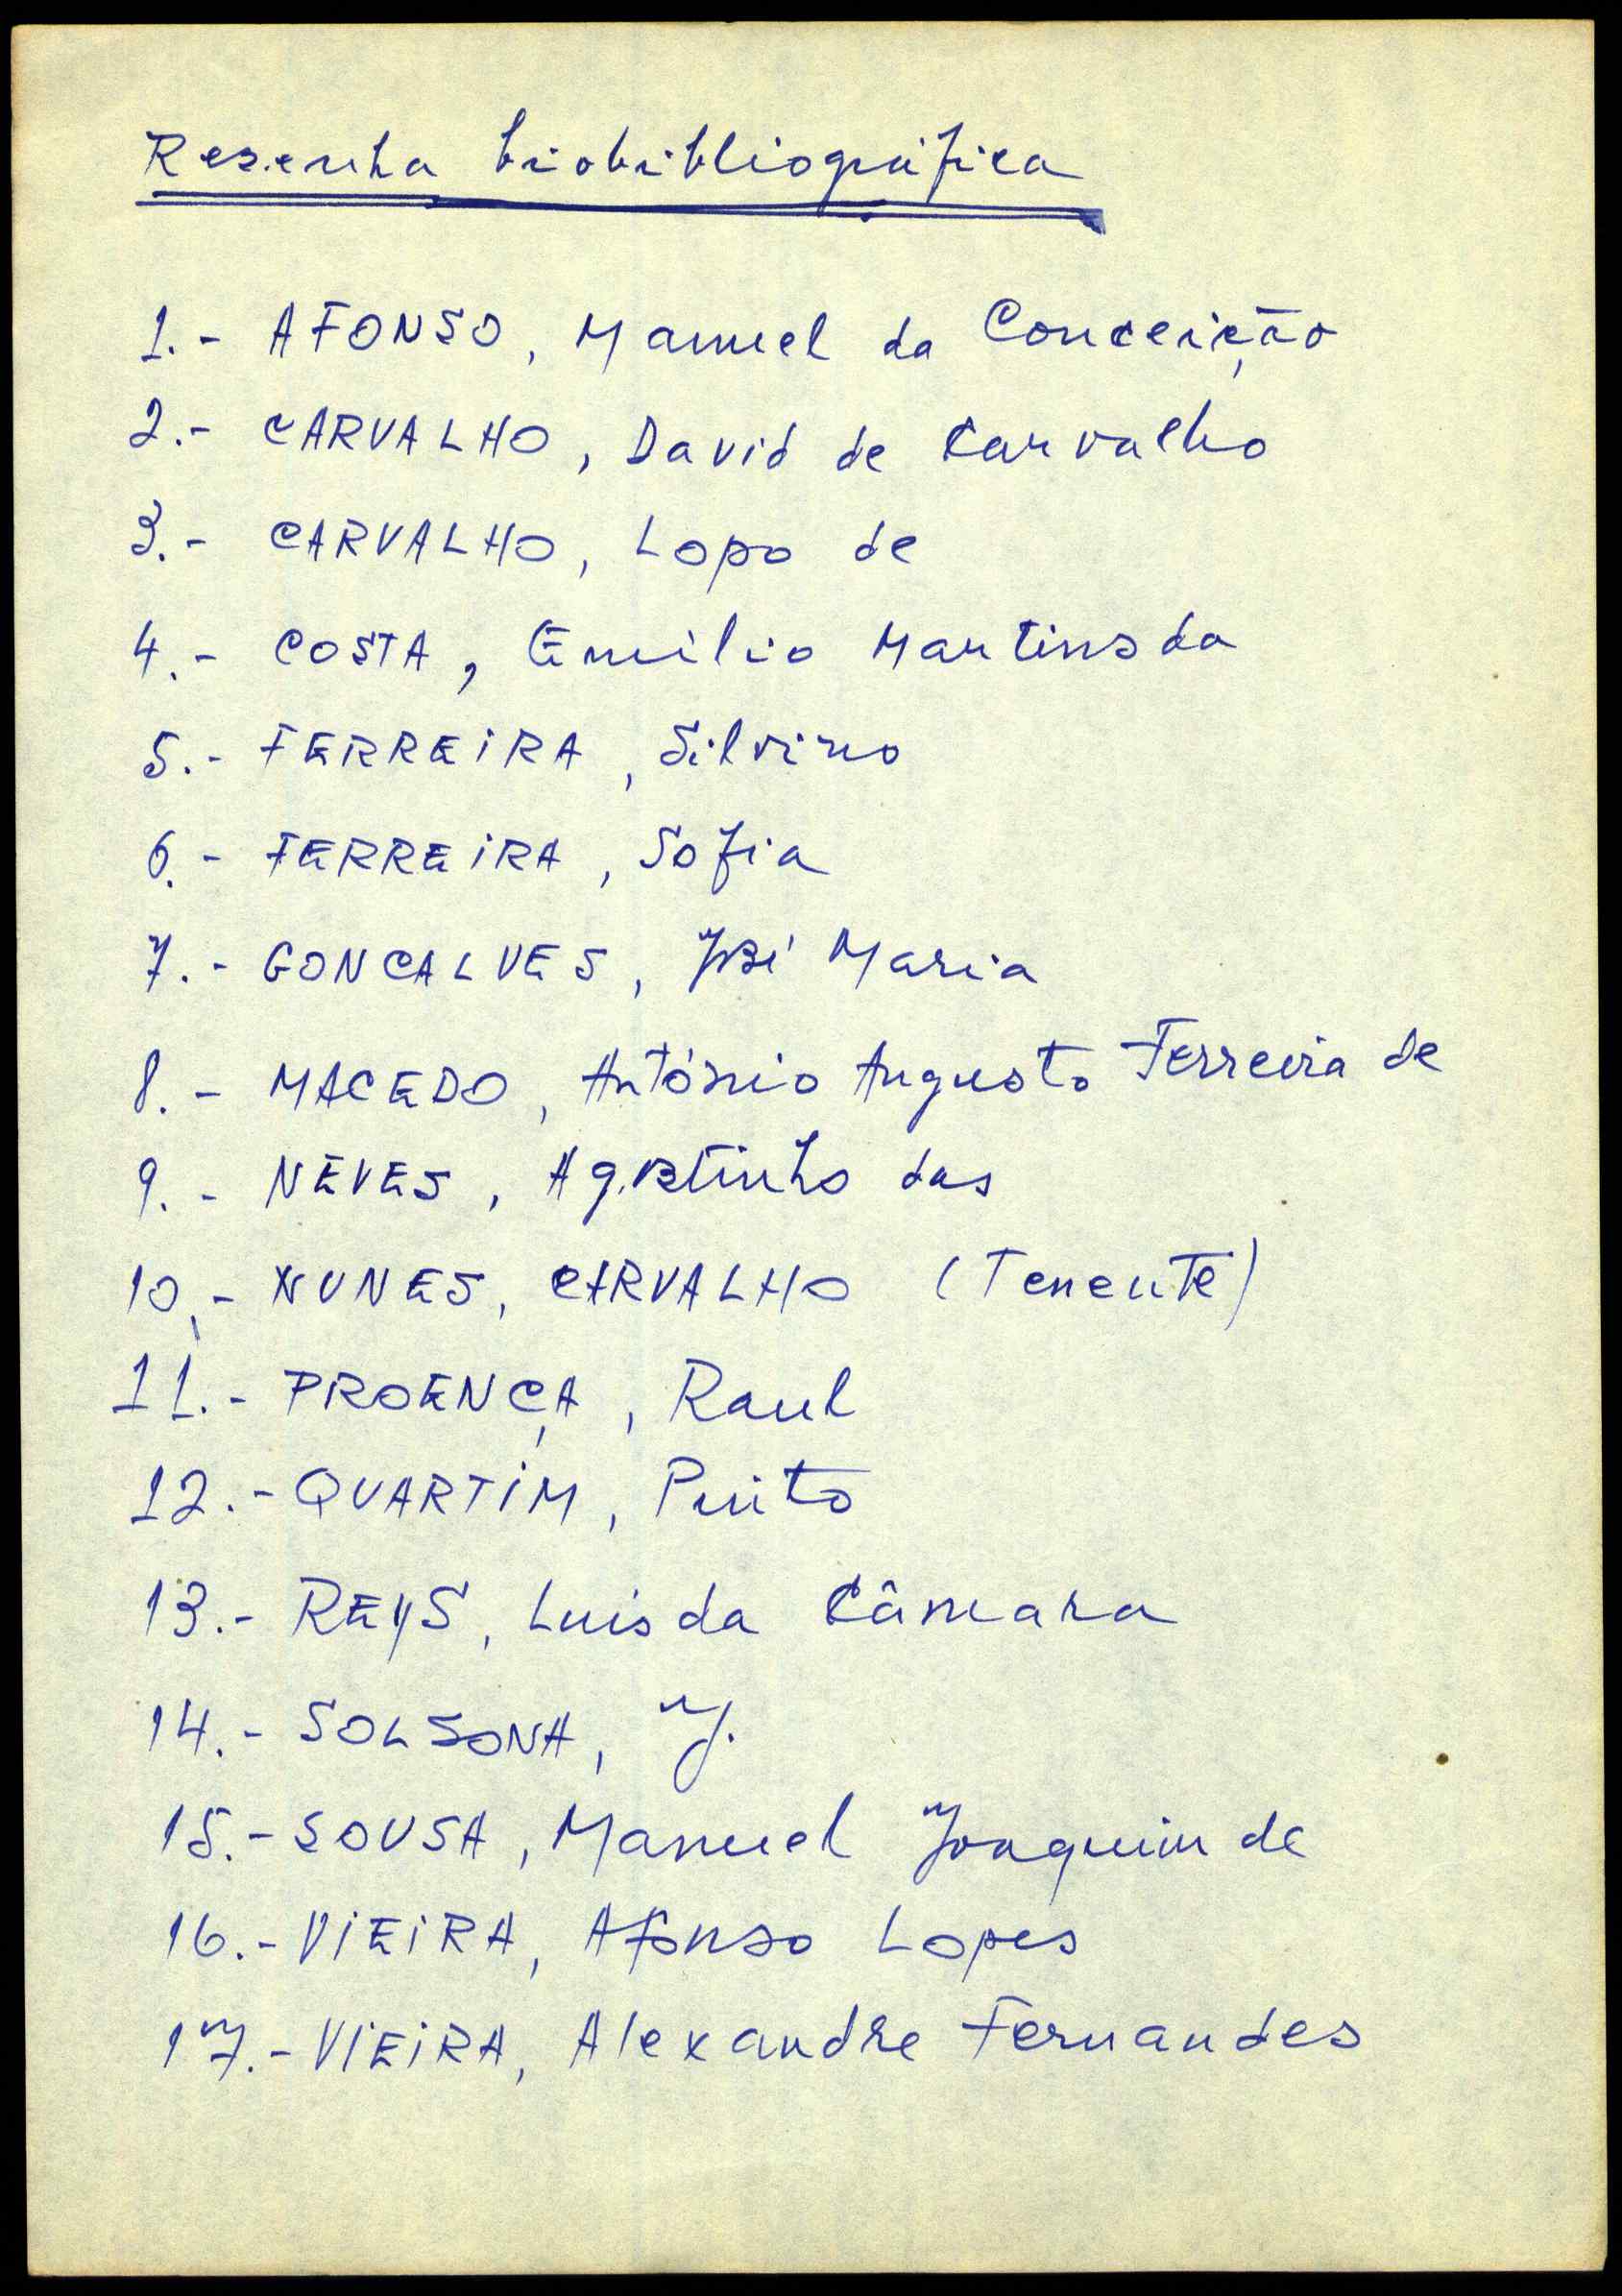 Resenha biobibliográfica
1.- AFONSO, Manuel da Conceição
2.- CARVALHO, David de Carvalho
3.- CARVALHO, Lopo de
4.- COSTA, Emílio Martins da
5.- FERREIRA, Silvino
6.- FERREIRA, Sofia
7.- GONCALVES, José Maria
8.- MACEDO, António Augusto Ferreira de
9.- NEVES, Agostinho das
10.- NUNES, CARVALHO (Tenente)
11.- PROENÇA, Raul
12.- QUARTIM, Pinto
13.- REYS, Luis da Câmara
14.- SOLSONA, J.
15.- SOUSA, Manuel Joaquim de
16.- VIEIRA, Afonso Lopes
17.- VIEIRA, Alexandre Fernandes